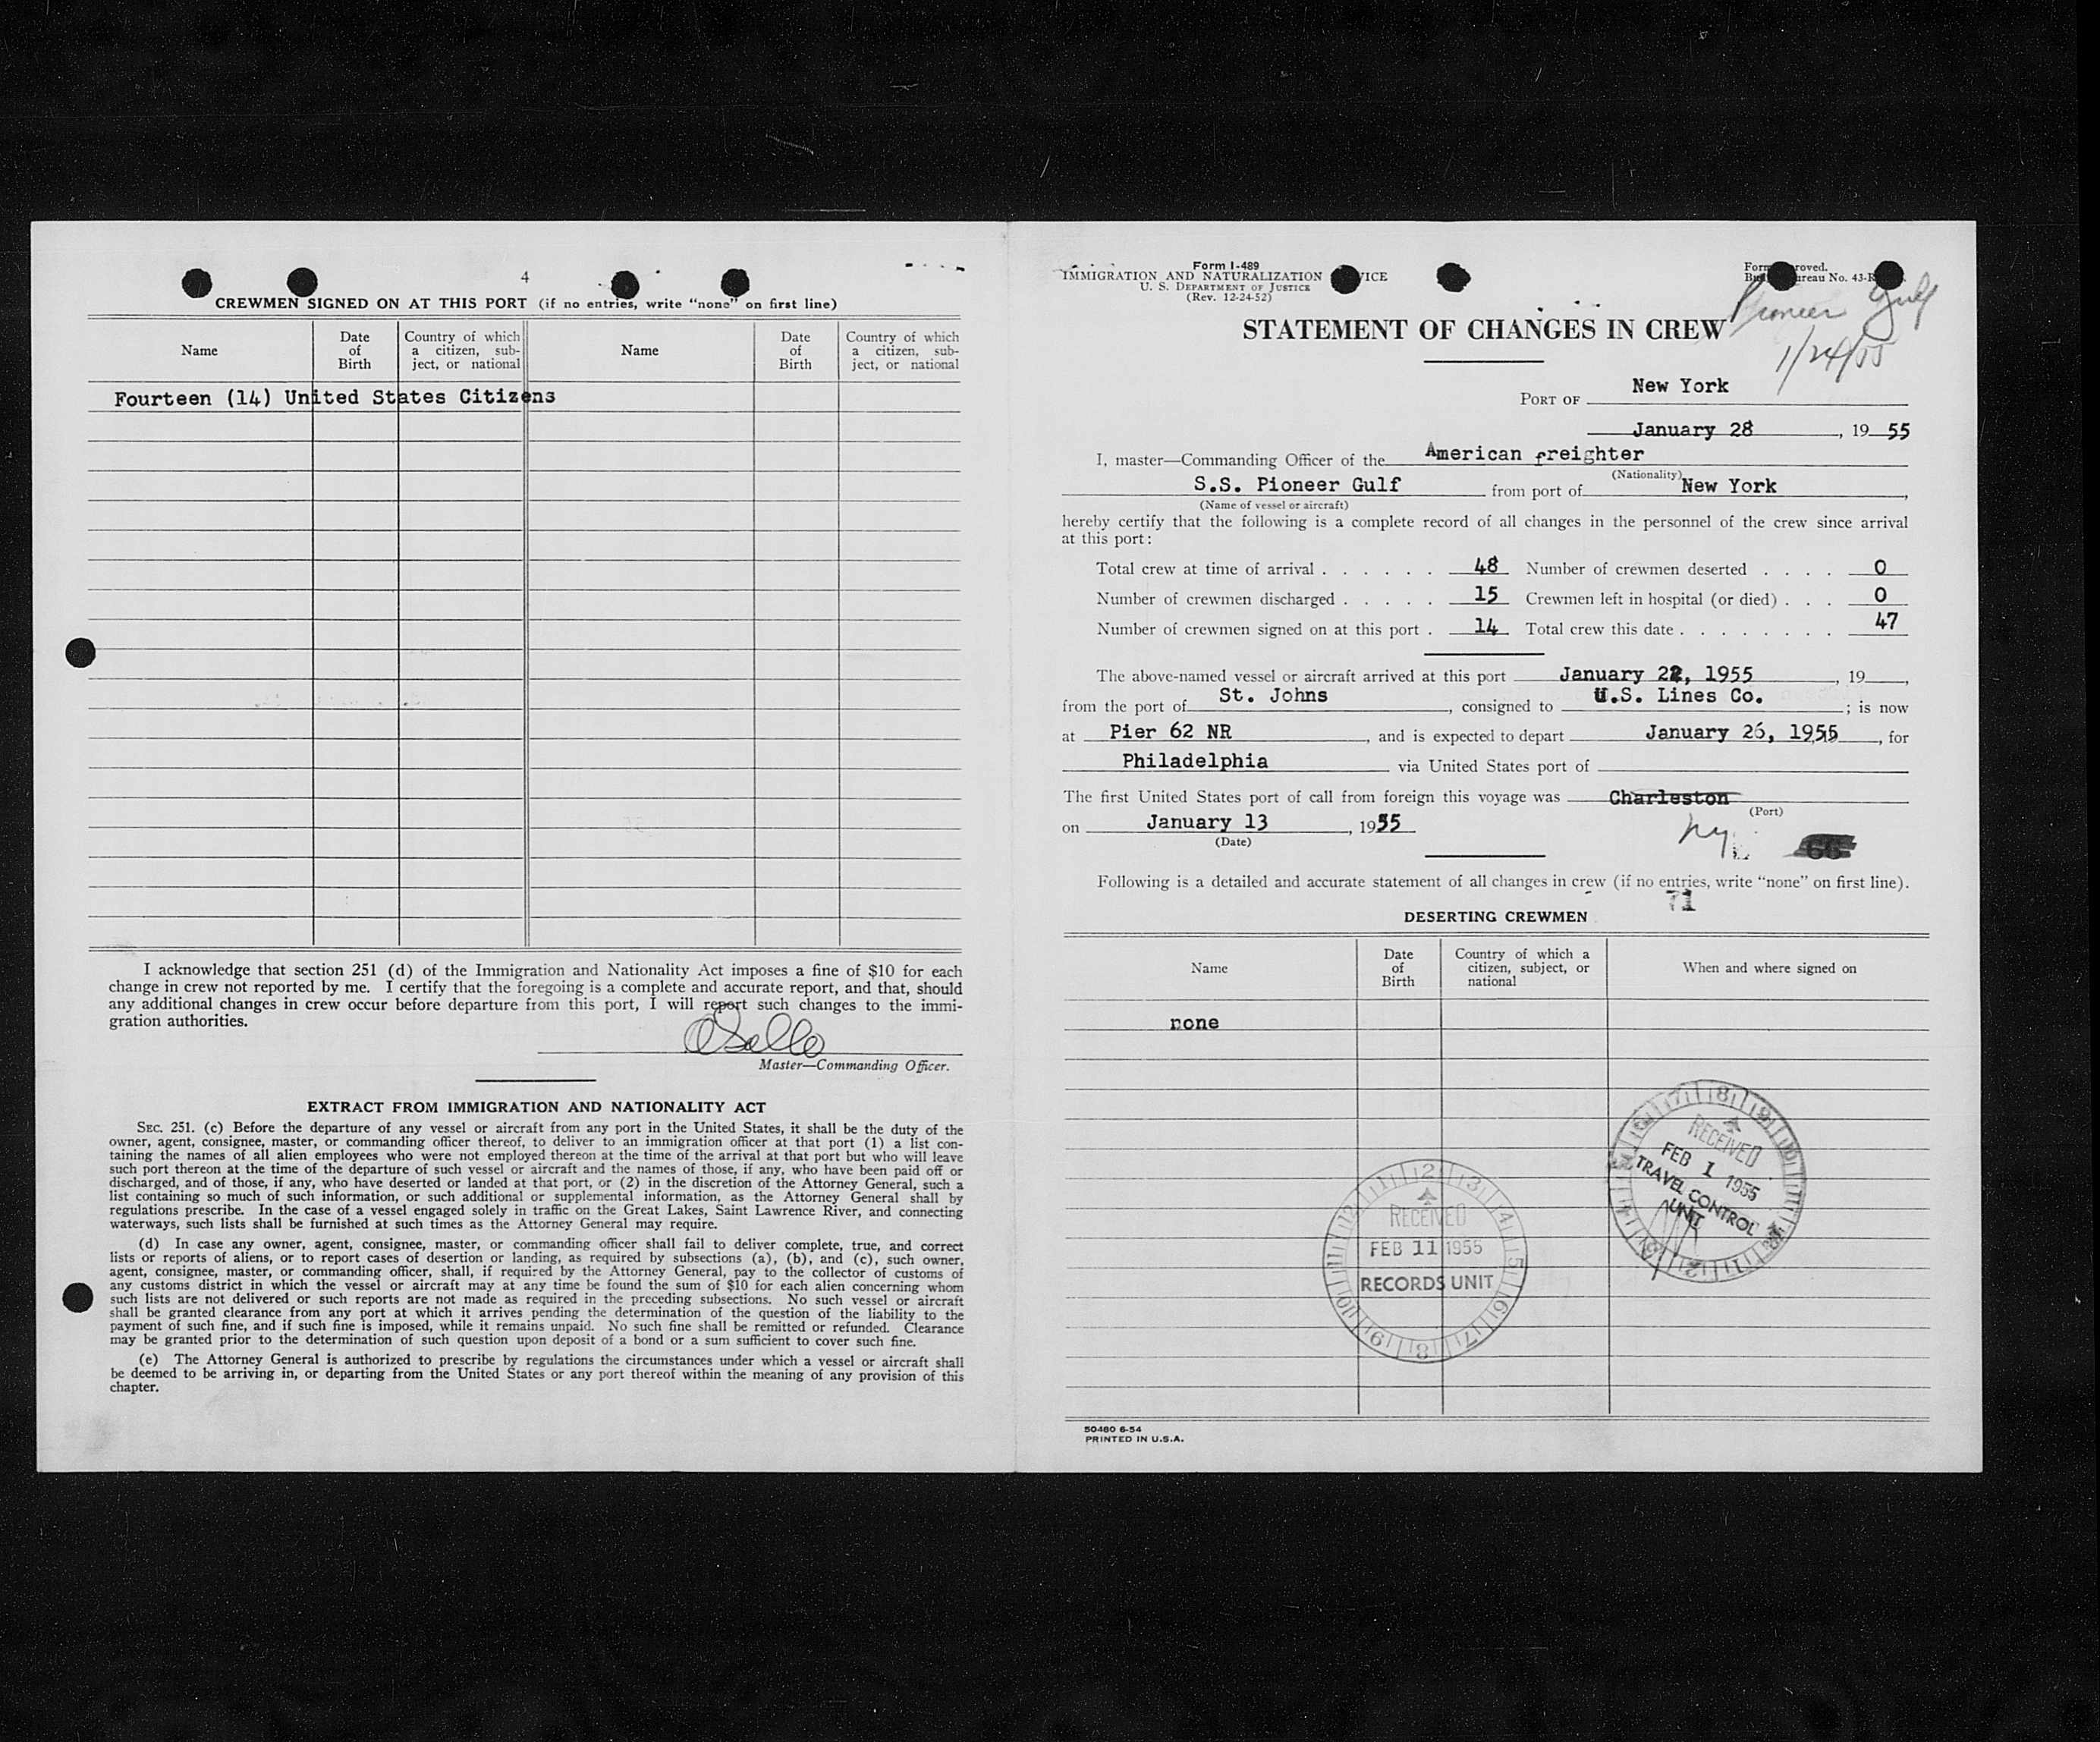 4
CREWMEN SIGNED ON AT THIS PORT (if no entries, write "none" on first line)
Name
Date of Birth
Country of which a citizen, sub-ject, or national
Name
Date of Birth
Country of which a citizen, sub-ject, or national
Fourteen (14) United States Citizens
I acknowledge that section 251 (d) of the Immigration and Nationality Act imposes a fine of $10 for each
change in crew not reported by me. I certify that the foregoing is a complete and accurate report, and that, should
any additional changes in crew occur before departure from this port, I will report such changes to the immi-
gration authorities.
Master—Commanding Officer.
EXTRACT FROM IMMIGRATION AND NATIONALITY ACT
SEC. 251. (c) Before the departure of any vessel or aircraft from any port in the United States, it shall be the duty of the
owner, agent, consignee, master, or commanding officer thereof, to deliver to an immigration officer at that port (1) a list con-
taining the names of all alien employees who were not employed thereon at the time of the arrival at that port but who will leave
such port thereon at the time of the departure of such vessel or aircraft and the names of those, if any, who have been paid off or
discharged, and of those, if any, who have deserted or landed at that port, or (2) in the discretion of the Attorney General, such a
list containing so much of such information, or such additional or supplemental information, as the Attorney General shall by
regulations prescribe. In the case of a vessel engaged solely in traffic on the Great Lakes, Saint Lawrence River, and connecting
waterways, such lists shall be furnished at such times as the Attorney General may require.
(d) In case any owner, agent, consignee, master, or commanding officer shall fail to deliver complete, true, and correct
lists or reports of aliens, or to report cases of desertion or landing, as required by subsections (a), (b), and (c), such owner,
agent, consignee, master, or commanding officer, shall, if required by the Attorney General, pay to the collector of customs of
any customs district in which the vessel or aircraft may at any time be found the sum of $10 for each alien concerning whom
such lists are not delivered or such reports are not made as required in the preceding subsections. No such vessel or aircraft
shall be granted clearance from any port at which it arrives pending the determination of the question of the liability to the
payment of such fine, and if such fine is imposed, while it remains unpaid. No such fine shall be remitted or refunded. Clearance
may be granted prior to the determination of such question upon deposit of a bond or a sum sufficient to cover such fine.
(e) The Attorney General is authorized to prescribe by regulations the circumstances under which a vessel or aircraft shall
be deemed to be arriving in, or departing from the United States or any port thereof within the meaning of any provision of this
chapter.
Form I-489
IMMIGRATION AND NATURALIZATION
U. S. DEPARTMENT OF JUSTICE
(Rev. 12-24-52)
No. 43-R
Pioneer Gulf
1/24/55
STATEMENT OF CHANGES IN CREW
PORT OF New York
January 28, 19 55
I, master—Commanding Officer of the American freighter
(Nationality)
S.S. Pioneer Gulf from port of New York,
(Name of vessel or aircraft)
hereby certify that the following is a complete record of all changes in the personnel of the crew since arrival
at this port:
Total crew at time of arrival . . . . . . 48 Number of crewmen deserted . . . . 0
Number of crewmen discharged . . . . . 15 Crewmen left in hospital (or died) . . . 0
Number of crewmen signed on at this port . 14 Total crew this date . . . . . . . . 47
The above-named vessel or aircraft arrived at this port January 22, 1955, 19 ,
from the port of St. Johns, consigned to U.S. Lines Co. ; is now
at Pier 62 NR, and is expected to depart January 26, 1955, for
Philadelphia via United States port of
The first United States port of call from foreign this voyage was Charleston
(Port)
on January 13, 1955
(Date)
ny.
66
Following is a detailed and accurate statement of all changes in crew (if no entries, write "none" on first line).
71
DESERTING CREWMEN
Name
Date of Birth
Country of which a citizen, subject, or national
When and where signed on
none
RECEIVED
FEB 1 1955
TRAVEL CONTROL
UNIT
RECEIVED
FEB 11 1955
RECORDS UNIT
50480 6-54
PRINTED IN U.S.A.